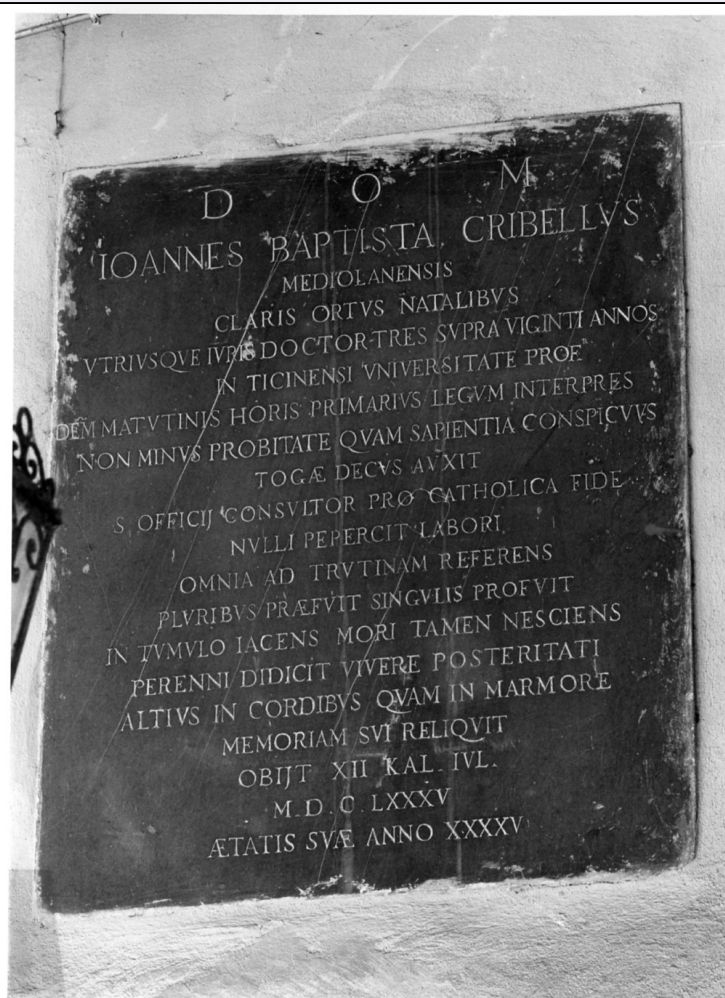 D O M
IOANNES BAPTISTA CRIBELLVS
MEDIOLANENSIS
CLARIS ORTVS NATALIBVS
VTRIVSQVE IVRIS DOCTOR TRES SVPRA VIGINTI ANNOS
IN TICINENSI VNIVERSITATE PROE
DEM MATVTINIS HORIS PRIMARIVS LEGVM INTERPRES
NON MINVS PROBITATE QVAM SAPIENTIA CONSPICVVS
TOGÆ DECVS AVXIT
S. OFFICIJ CONSVLTOR PRO CATHOLICA FIDE
NVLLI PEPERCIT LABORI
OMNIA AD TRVTINAM REFERENS
PLVRIBVS PRÆFVIT SINGVLIS PROFVIT
IN TVMVLO IACENS MORI TAMEN NESCIENS
PERENNI DIDICIT VIVERE POSTERITATI
ALTIVS IN CORDIBVS QVAM IN MARMORE
MEMORIAM SVI RELIQVIT
OBIJT XII KAL. IVL.
M.D.C.LXXXV
ÆTATIS SVÆ ANNO XXXXV